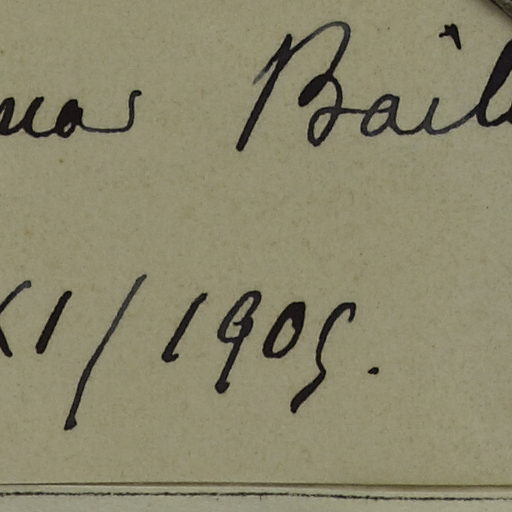 mas Bail
XI/1905.